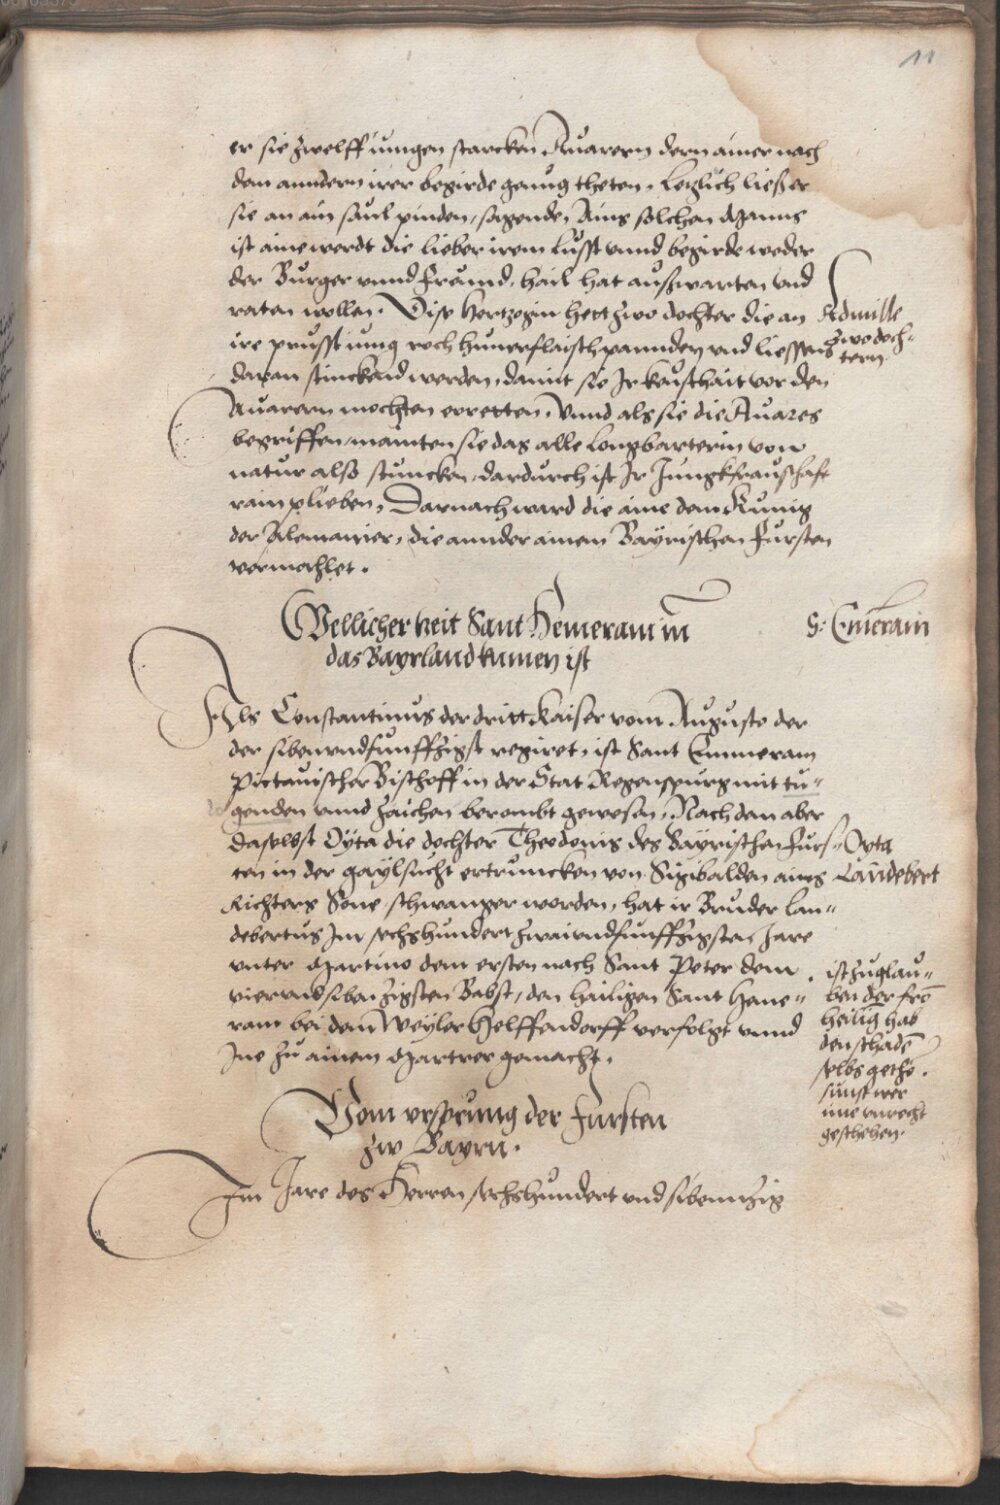 11
er sie zwelff iungen starcken Auarern dern ainer nach
dem anndern irer begirde genug theten. Letzlich ließ er
sie an ain saul pinden, sagende, Ains solchen Manns
ist aine werdt die lieber irem lusst vnnd begirde weder
der Burger vnnd freünd hail hat außwarten vnd
raten wollen. Dise Hertzogin hett zwo dochter die an
ire prusst iung roch huenerflaisch pannden vnd liessens
daran stinckend werden, damit sie Ir keuschait vor den
Auarern mochten erretten, Vnnd als sie die Auares
begriffen, mainten sie das alle Longbarterin von
natur also stuncken, dardurch ist Ir Jungkfrauschafft
rain plieben, Darnach ward die aine dem Kunig
der Alemanier, die annder ainem Bayrischen Fursten
vermechlet.
Romuille
zwo doch-
tern
Wellicher zeit Sant Hemeram in
das Bayrland kumen ist
S: Emeram
Als Constantinus der dritt Kaiser vom Auguste der
der sibenvndfunffzigst regiret, ist Sant Emmeram
Pictauischer Bischoff in der Stat Regenspurg mit tu-
genden vnnd zaichen berombt gewesen, Nach dem aber
daselbst Oyta die dochter Theodonis des Bayrischen Furs-
ten in der gaylsucht ertruncken von Sigibalden aines
Richters Sone schwanger worden, hat ir Bruder Lan-
debertus Im sechshundert zwaivndfunffzigsten Jare
vnter Martino dem ersten nach Sant Peter dem
viervndsibenzigsten Babst, den hailigen Sant Heme-
ram bei dem Weyler Helffendorff verfolgt vnnd
Ine zu ainem Martrer gemacht.
Oyta
Landebert
ist zuglau-
ben der fro
heilig hab
den schadē
selbs getho.
sunst wer
ime vnrecht
geschehen.
Vom vrsprung der Fursten
zw Bayrn.
Im Jare des Herren sechshundert vnd sibenntzig